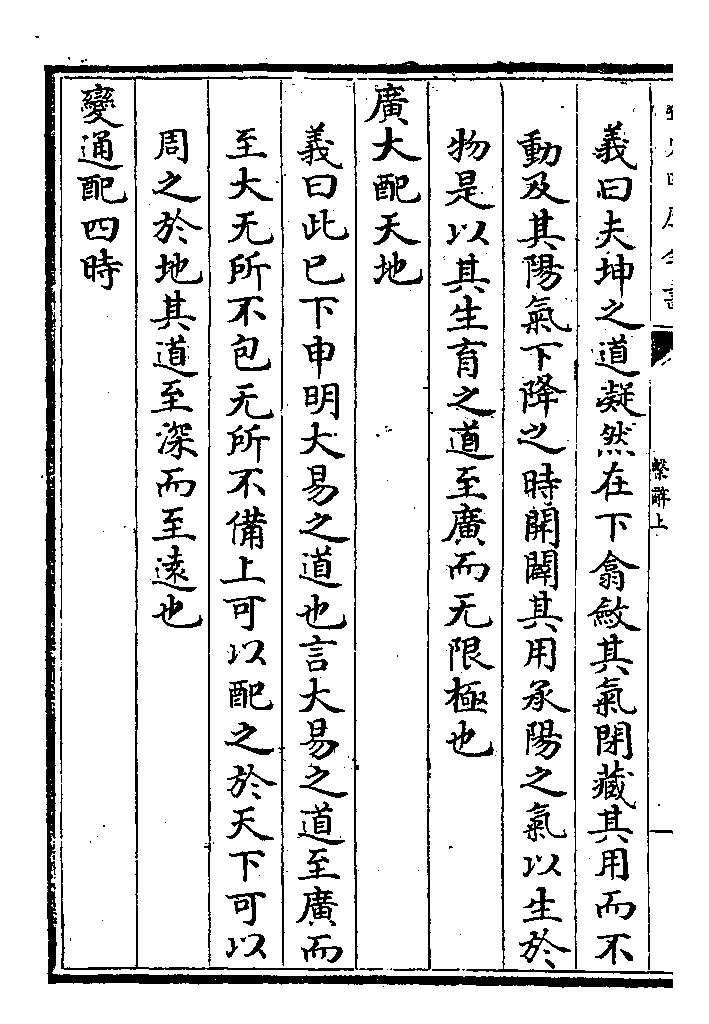 繫辭上
義曰夫坤之道凝然在下翕斂其氣閉藏其用而不
動及其陽氣下降之時開闢其用承陽之氣以生於
物是以其生育之道至廣而无限極也
廣大配天地
義曰此已下申明大易之道也言大易之道至廣而
至大无所不包无所不備上可以配之於天下可以
周之於地其道至深而至遠也
變通配四時